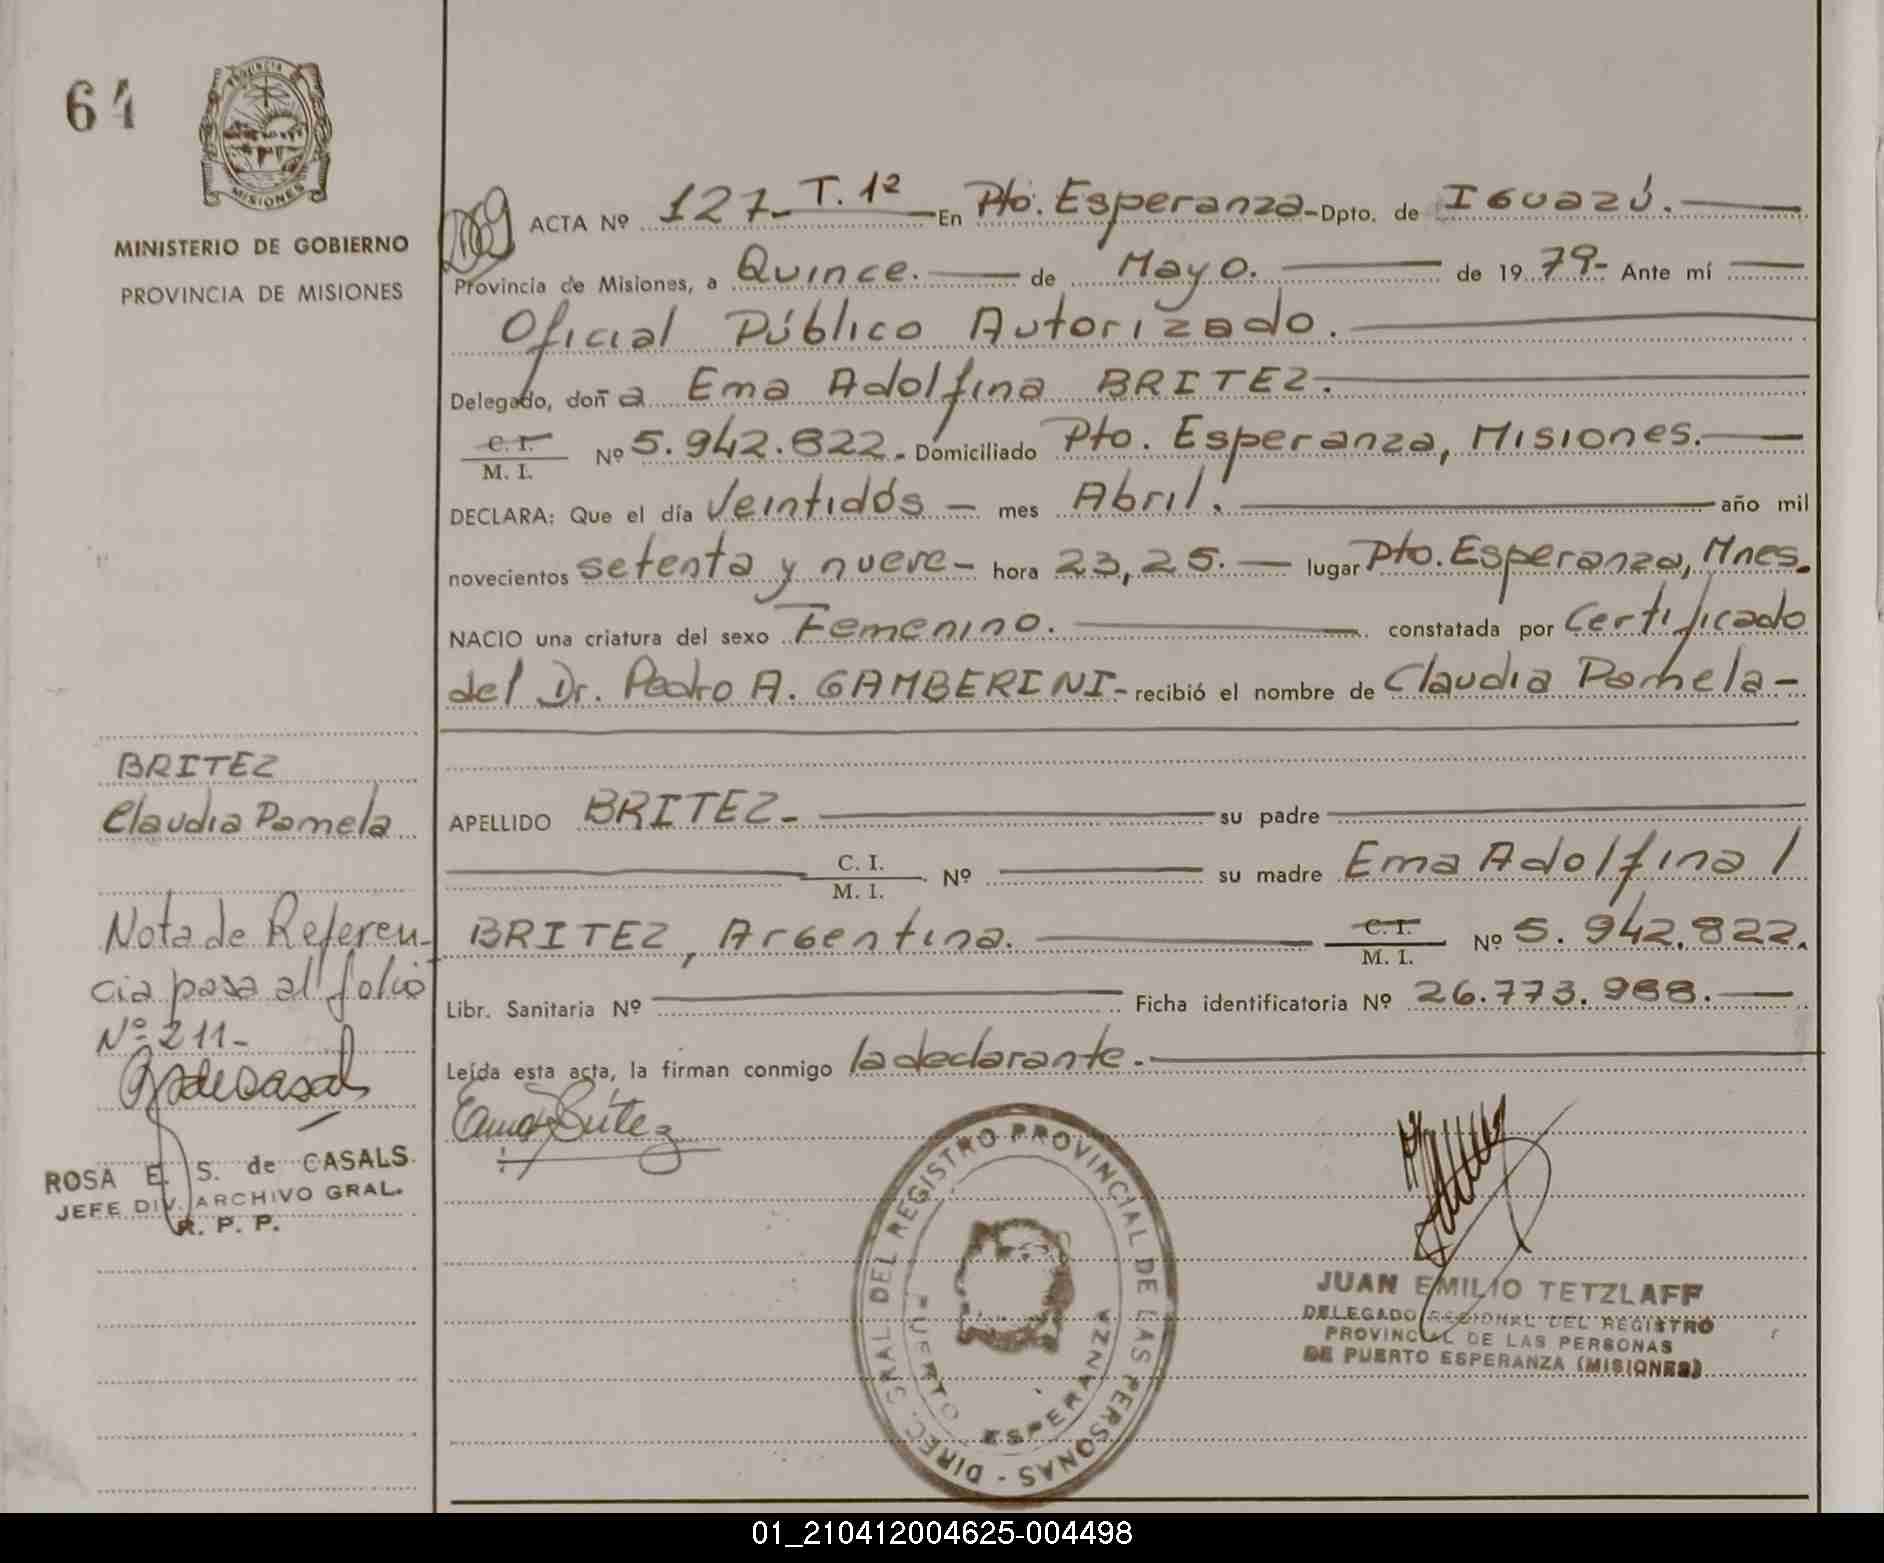 64
PROVINCIA
MISIONES
MINISTERIO DE GOBIERNO
PROVINCIA DE MISIONES
ACTA Nº 127- T. 1º En Pto. Esperanza- Dpto. de Iguazú.
Provincia de Misiones, a Quince. de Mayo. de 1979- Ante mí
Oficial Público Autorizado.
Delegado, doña Ema Adolfina BRITEZ.
C. I.
M. I. Nº 5.942.822.- Domiciliado Pto. Esperanza, Misiones.
DECLARA: Que el día Veintidós - mes Abril. año mil
novecientos setenta y nueve- hora 23,25. lugar Pto. Esperanza, Mnes.
NACIO una criatura del sexo Femenino. constatada por Certificado
del Dr. Pedro A. GAMBERINI- recibió el nombre de Claudia Pamela-
APELLIDO BRITEZ- su padre
C. I.
M. I. Nº su madre Ema Adolfina /
BRITEZ, Argentina. C. I.
M. I. Nº 5.942.822.
Libr. Sanitaria Nº Ficha identificatoria Nº 26.773.988.
Leída esta acta, la firman conmigo la declarante.
BRITEZ
Claudia Pamela
Nota de Referen-
cia pasa al folio
Nº 211-
ROSA E. S. de CASALS
JEFE DIV. ARCHIVO GRAL.
R. P. P.
Ema Britez
DIREC. GRAL DEL REGISTRO PROVINCIAL DE LAS PERSONAS -
PUERTO ESPERANZA
JUAN EMILIO TETZLAFF
DELEGADO REGIONAL DEL REGISTRO
PROVINCIAL DE LAS PERSONAS
DE PUERTO ESPERANZA (MISIONES)
01_210412004625-004498